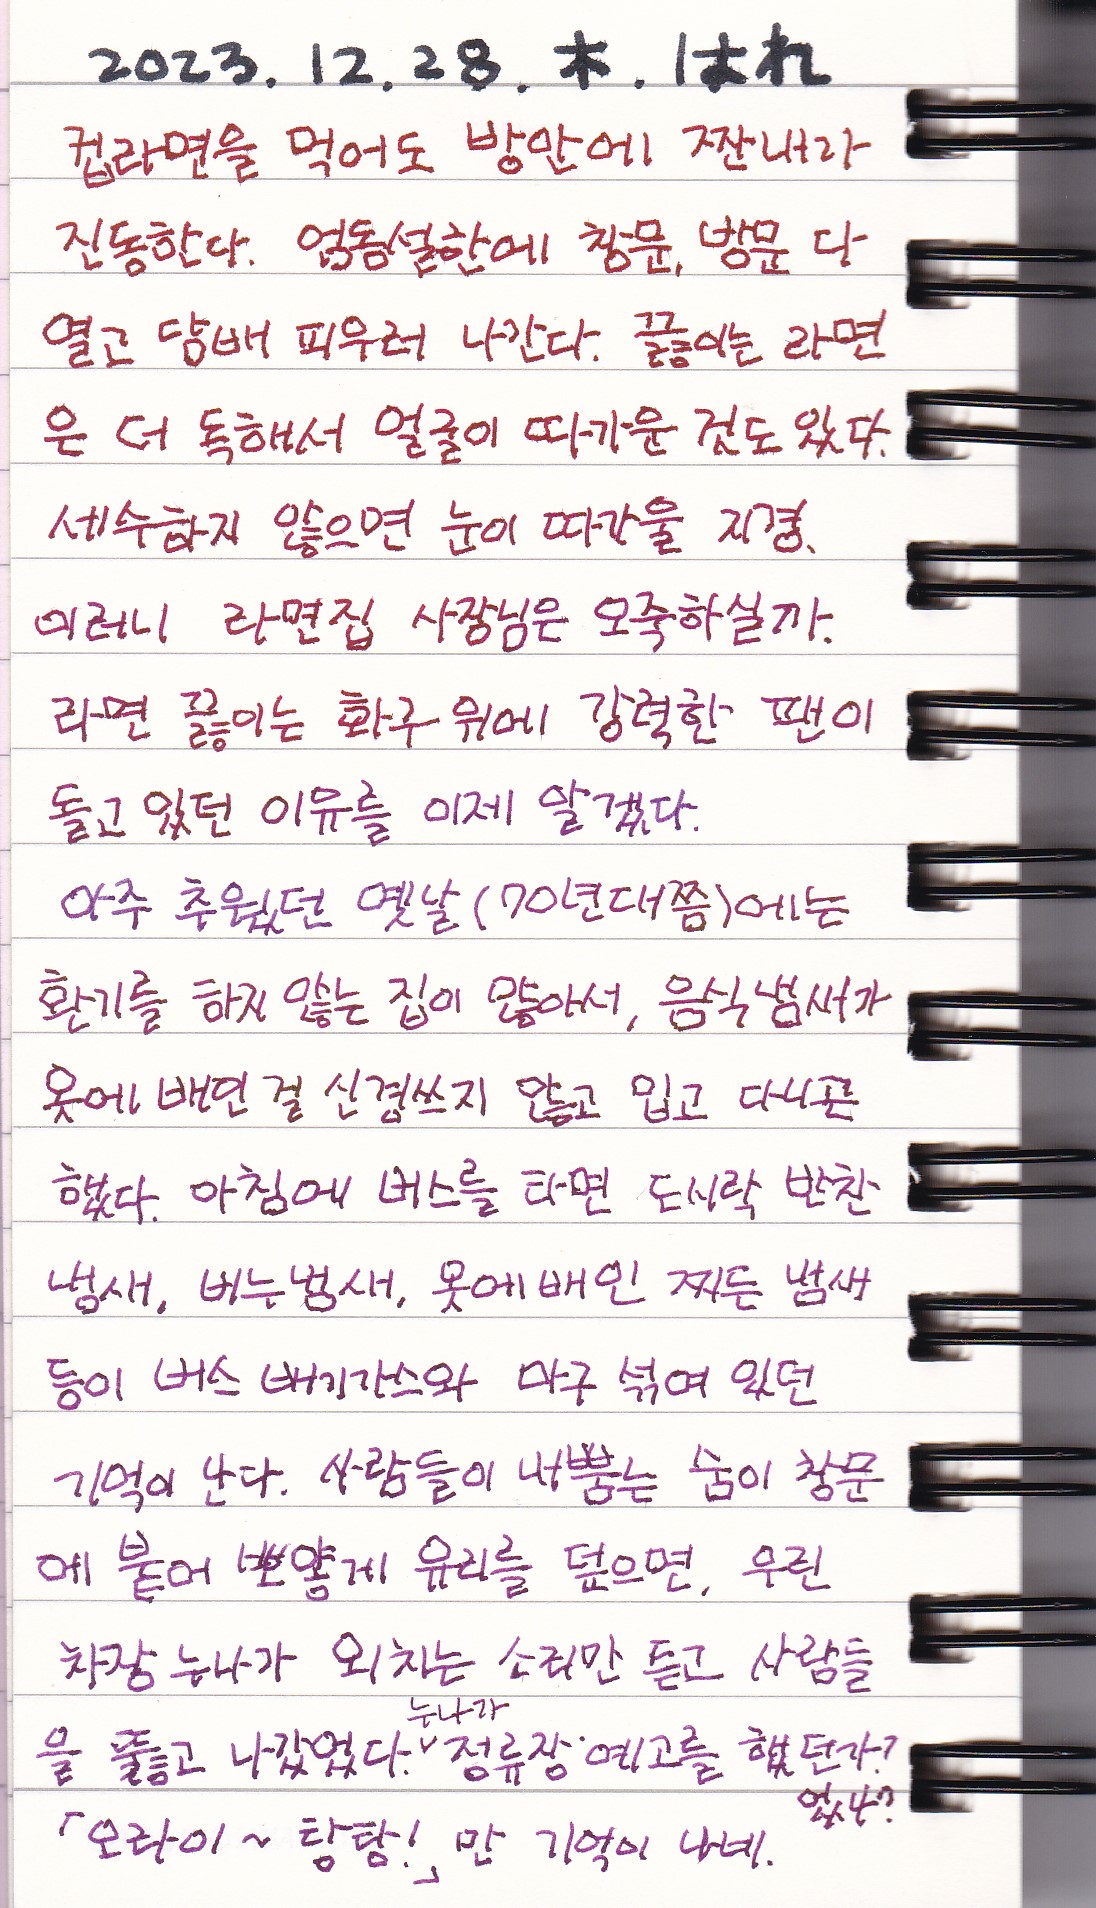 2023. 12. 28. 木. はれ
컵라면을 먹어도 방안에 짠내가
진동한다. 엄동설한에 창문, 방문 다
열고 담배 피우러 나간다. 끓이는 라면
은 더 독해서 얼굴이 따가운 것도 있다.
세수하지 않으면 눈이 따가울 지경.
이러니 라면집 사장님은 오죽하실까.
라면 끓이는 화구 위에 강력한 팬이
돌고 있던 이유를 이제 알겠다.
아주 추웠던 옛날(70년대쯤)에는
환기를 하지 않는 집이 많아서, 음식냄새가
옷에 배인 걸 신경쓰지 않고 입고 다니곤
했다. 아침에 버스를 타면 도시락 반찬
냄새, 비누냄새, 옷에 배인 찌든 냄새
등이 버스 배기가스와 마구 섞여 있던
기억이 난다. 사람들이 내뿜는 숨이 창문
에 붙어 뽀얗게 유리를 덮으면, 우린
차장 누나가 외치는 소리만 듣고 사람들
을 뚫고 나갔었다. 누나가 정류장 예고를 했던가?
했었나?
「오라이~ 탕탕!」만 기억이 나네.